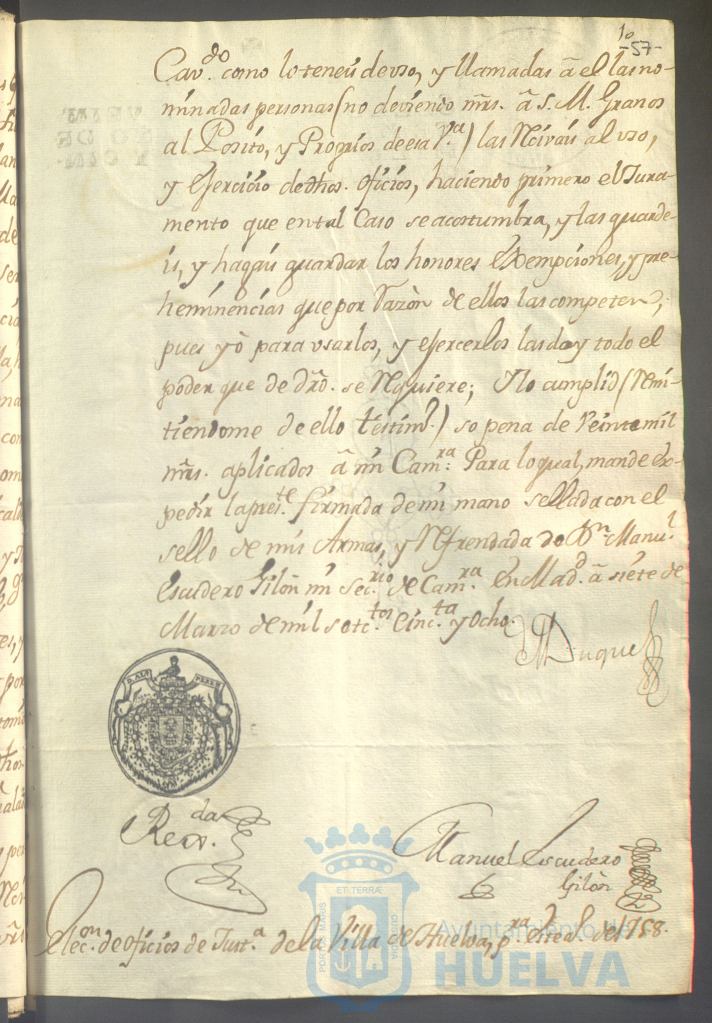 1o
-57-
Cav.do como lo teneis de vso, y llamadas â el las no-
minadas personas (no deviendo mrs. â S. M. Granos
al Posito, y Propios de esa V.a) las Recivais al vso,
y Ejercicio de dhos. oficios, haciendo primero el Jura-
mento que en tal Caso se acostumbra, y las guarde-
is, y hagais guardar los honores Exempciones, y pre-
heminencias que por Razòn de ellos las competen;
pues yò para vsarlos, y ejercerlos las doy todo el
poder que de dro. se Requiere; Y lo cumplid (Remi-
tiendome de ello testim.o) so pena de Veinte mil
mrs. aplicados â mi Cam.ra Para lo qual, mande ex-
pedir la pres.te firmada de mi mano sellada con el
sello de mis Armas, y Refrendada de Dn. Manu.l
Escudero Gilòn mi Sec.rio de Cam.ra En Mad.d â siete de
Marzo de mil setc.tos Cinc.ta y Ocho.
El Duque
D. ALO PEREZ
Rex.da
Manuel Escudero
Gilòn
Elec.on de oficios de Just.a de la Villa de Huelva, p.ra el de 1758.
PORTUS MARIS ET TERRÆ CUSTODIA
Ayuntamiento de
HUELVA